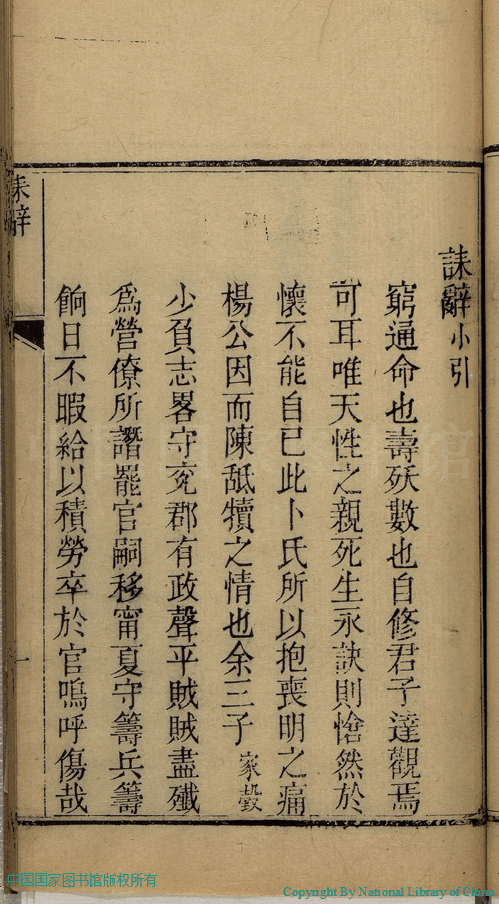 誄辭小引
窮通命也壽殀數也自修君子達觀焉
可耳唯天性之親死生永訣則愴然於
懷不能自已此卜氏所以抱喪明之痛
楊公因而陳舐犢之情也余三子家毅
少負志畧守兖郡有政聲平賊賊盡殲
爲營僚所譖罷官嗣移甯夏守籌兵籌
餉日不暇給以積勞卒於官嗚呼傷哉
誄辭
一
中国国家图书馆版权所有
Copyright By National Library of China